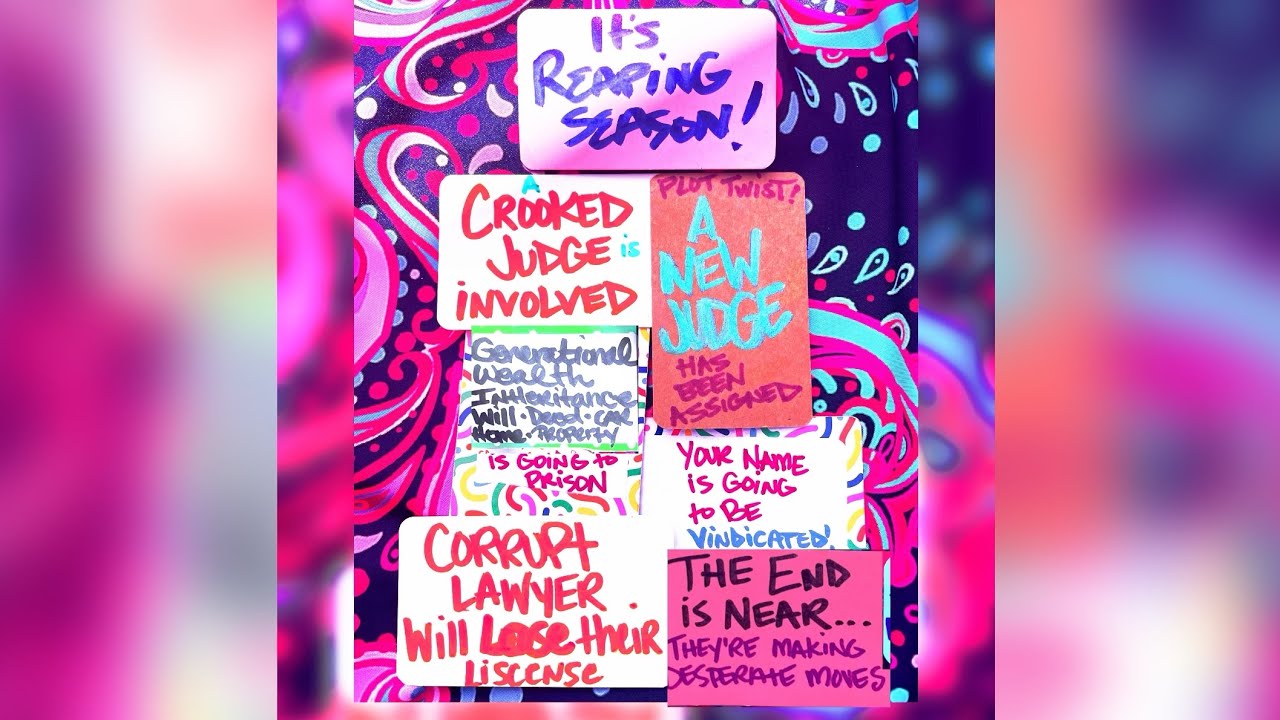 It's
REAPING
SEASON!
A
CROOKED
JUDGE is
iNVOLVED
PLOT TWIST!
A
NEW
JUDGE
HAS
BEEN
ASSIGNED
Generational
Wealth
Inheritance
Will · Deed · CAR
Home · PROPERTY
iS GOiNG to
PRiSON
YOUR NAME
iS GOiNG
to BE
ViNDiCATED!
CORRUPt
LAWYER
Will Lose their
Liscense
THE END
iS NEAR...
THEY'RE MAKING
DESPERATE MOVES